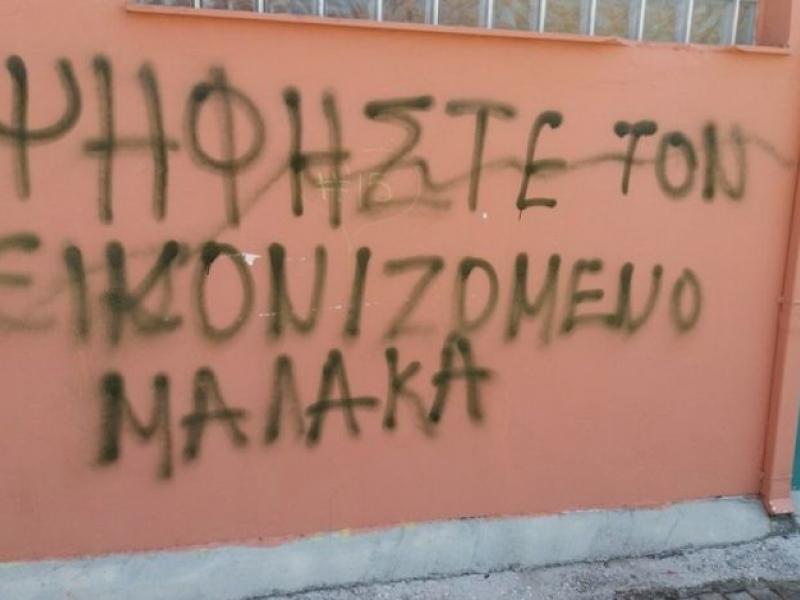 ΨΗΦΗΣΤΕ ΤΟΝ
ΕΙΚΟΝΙΖΟΜΕΝΟ
ΜΑΛΑΚΑ
#15